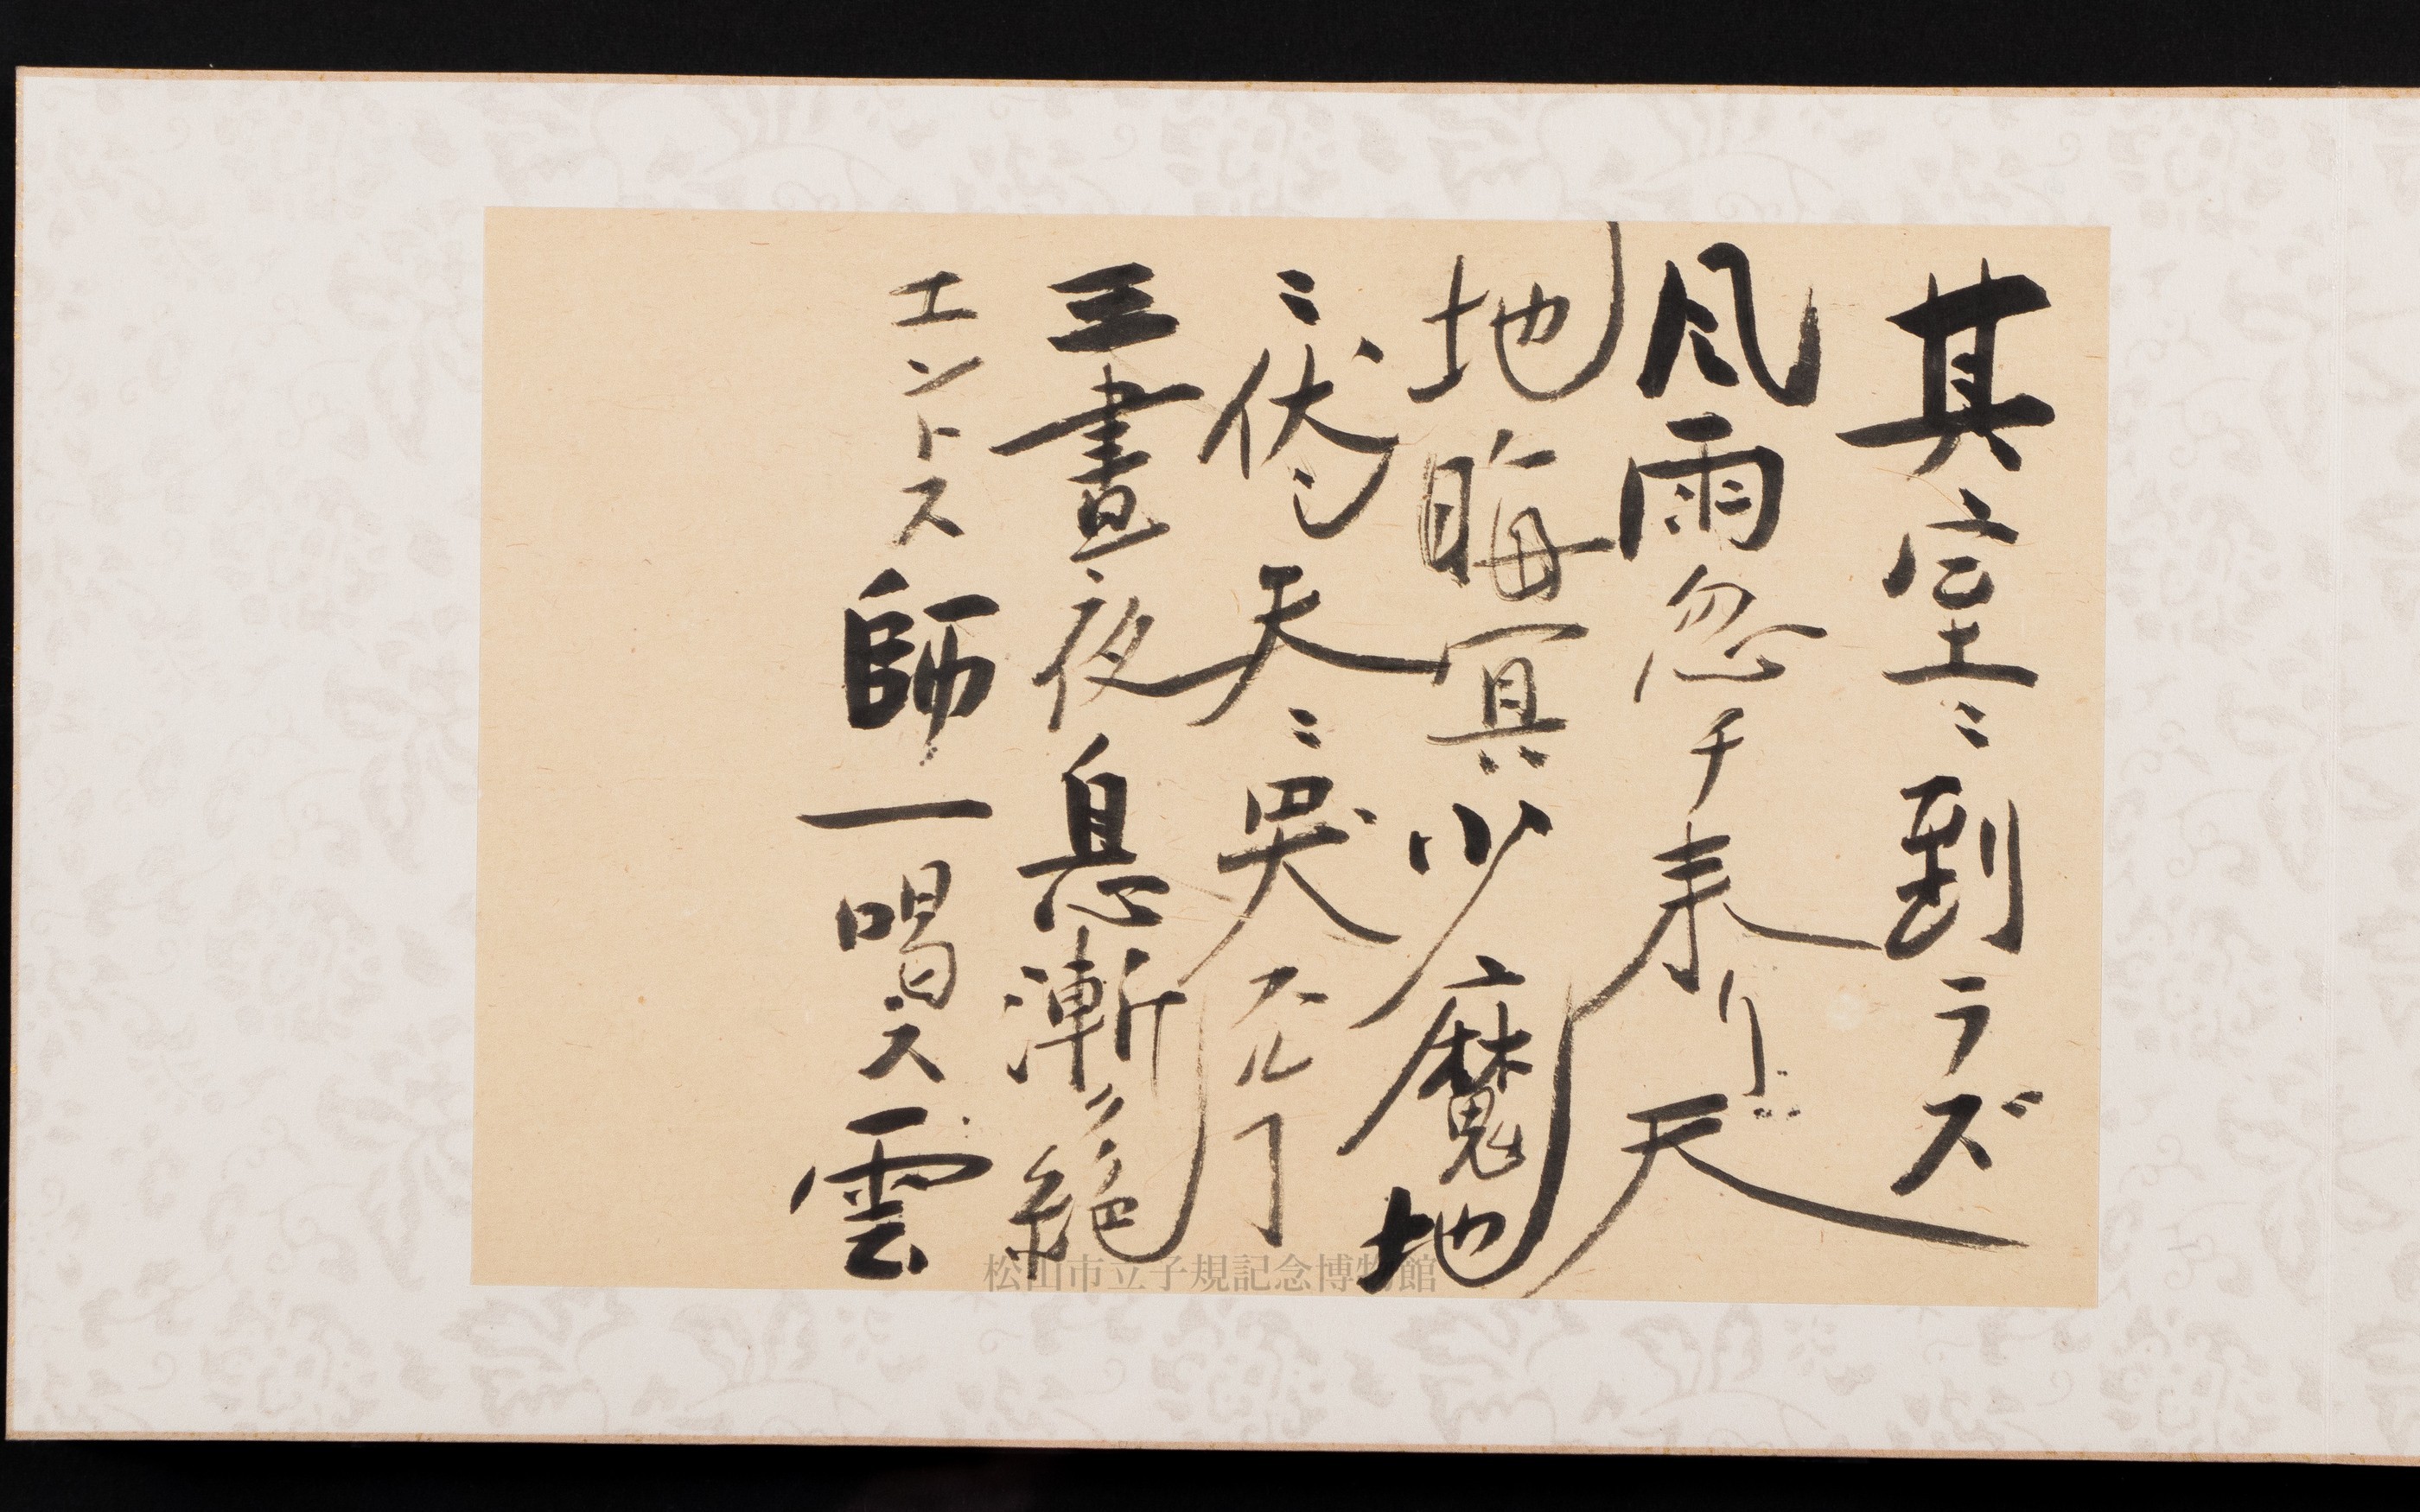 其室ニ到ラズ
風雨忽チ来リ天
地晦冥少魔地
ニ伏シ天ニ哭スルヿ
三晝夜息漸ク絶
エントス師一喝ス雲
松山市立子規記念博物館